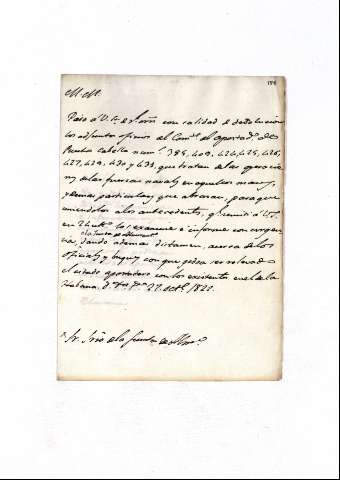 M M.
Paso á V. E. de Rl. orñ con calidad de devolucion
los adjuntos oficios del Comte. del apostado. de
Puerto Cabello num.s 385, 409, 424, 425, 426,
427, 429, 430 y 433, que tratan de las operacio
nes de las fuerzas navales en aquellos mares,
y demas particulares que abrazan, para que
uniendolos a los antecedentes, q.e remiti á V. E.
en 24 los examine é informe con urgen
la Junta de Almirantazgo
cia, dando ademas dictamen, acerca de los
oficiales y buques con que podra ser relevado
el citado apostadero con los existentes en el de la
Habana. D. 27 oct.e 1822.
Sr. Srio de la Junta de Alm.o